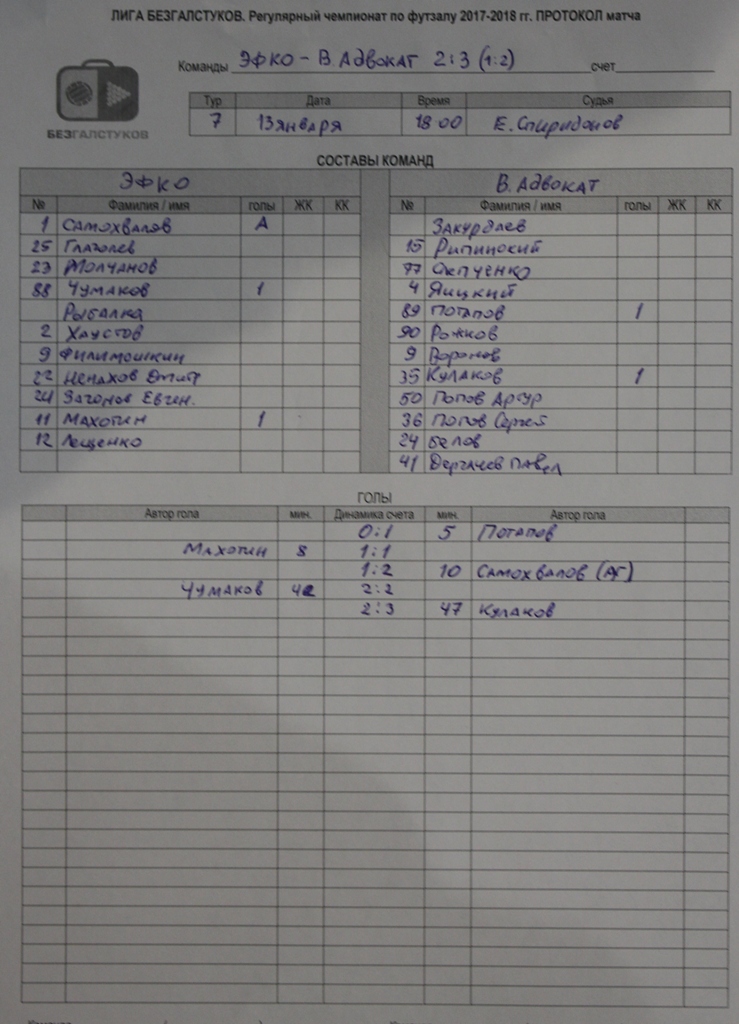 ЛИГА БЕЗГАЛСТУКОВ. Регулярный чемпионат по футзалу 2017-2018 гг. ПРОТОКОЛ матча
Команды ЭФКО - В. АДВОКАТ 2:3 (1:2) счет
БЕЗГАЛСТУКОВ
Тур Дата Время Судья
7 13 ЯНВАРЯ 18 00 Е. Спиридонов
СОСТАВЫ КОМАНД
ЭФКО В. АДВОКАТ
№ Фамилия / имя голы ЖК КК № Фамилия / имя голы ЖК КК
1 САМОХВАЛОВ А
25 Глаголев 15
23 МОЛЧАНОВ 77
88 ЧУМАКОВ 1 4 Яицкий
РЫБАЛКА 89 ПОТАПОВ 1
2 ХАУСТОВ 90 РОЖКОВ
9 ФИЛИМОШКИН 9 Воронов
22 НЕНАХОВ 35 КУЛАКОВ 1
24 Евген. 50 ПОПОВ АРТУР
11 МАХОТИН 1 36 ПОПОВ Сергей
12 Лещенко 24 БЕЛОВ
41 ДЕРГАЧЕВ ПАВЕЛ
ГОЛЫ
Автор гола мин. Динамика счета мин. Автор гола
0:1 5 ПОТАПОВ
МАХОТИН 8 1:1
1:2 10 САМОХВАЛОВ (АГ)
ЧУМАКОВ 42 2:2
2:3 47 КУЛАКОВ